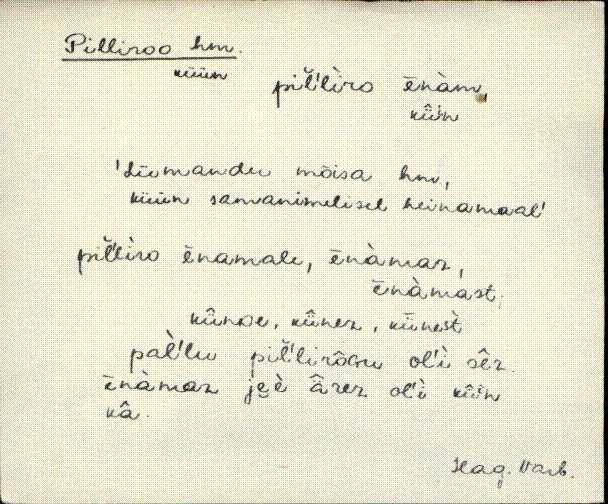 Pilliroo hm.
küün
pil̆'l̀iro ēnàm,
kǖn
'Liimandu mõisa hm,
küün samanimelisel heinamaal'
pil̆'l̀iro ēnamale, ēnàmaz,
ēnàmast,
kǖnoe, kǖnez, kǖnest̀
pal̀'lu pil̆'lirôGu ol'ì sêz.
ēnàmaz jẹè ârez ol'ì kǖn
kâ.
Hag. Varb.